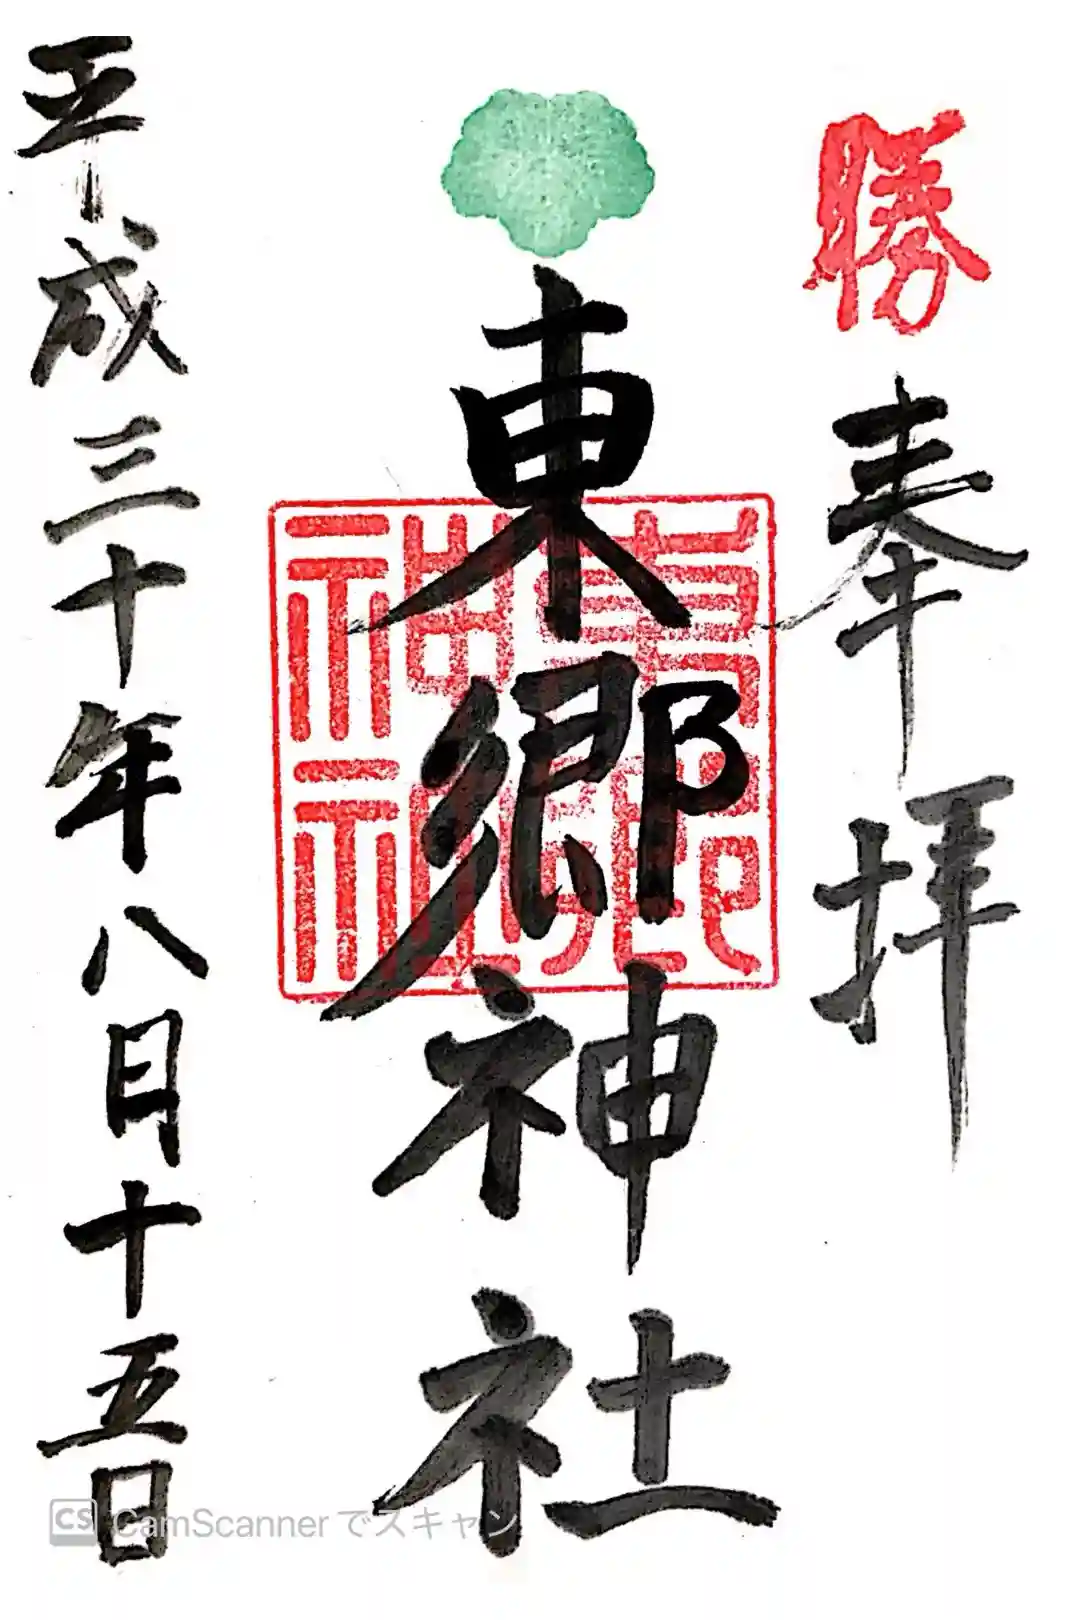 勝
奉拝
東郷神社
東郷神社
平成三十年八月十五日
CS CamScannerでスキャン